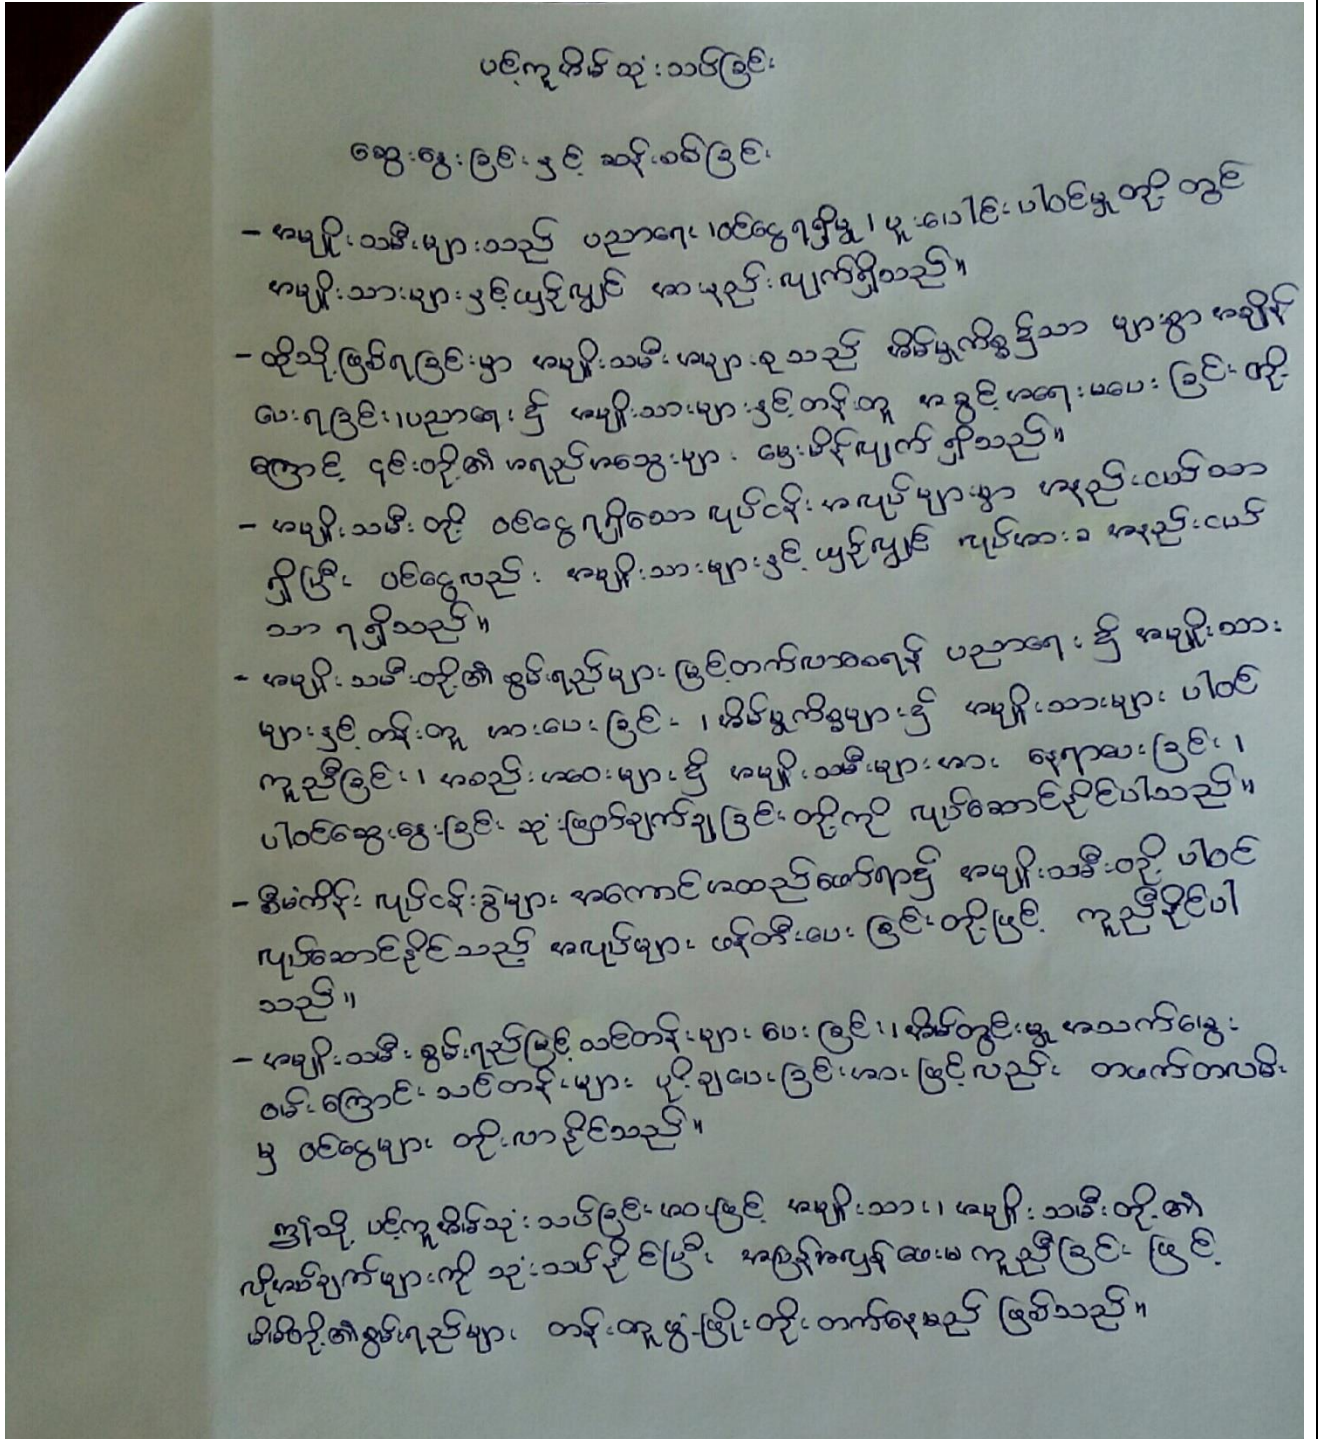 ပင့်ကူအိမ်သုံးသပ်ခြင်း
ဆွေးနွေးခြင်းနှင့် ဆန်းစစ်ခြင်း
- အမျိုးသမီးများသည် ပညာရေး၊ဝင်ငွေရရှိမှု၊ပူးပေါင်းပါဝင်မှုတို့တွင်
အမျိုးသားများနှင့်ယှဉ်လျှင် အားနည်းလျက်ရှိသည်။
- ထိုသို့ဖြစ်ရခြင်းမှာ အမျိုးသမီးအများစုသည် အိမ်မှုကိစ္စ၌သာ များစွာအချိန်
ပေးရခြင်း၊ပညာရေး၌ အမျိုးသားများနှင့်တန်းတူ အခွင့်အရေးမပေးခြင်းတို့
ကြောင့် ၎င်းတို့၏အရည်အသွေးများ မှေးမှိန်လျက်ရှိသည်။
- အမျိုးသမီးတို့ ဝင်ငွေရရှိသော လုပ်ငန်းအလုပ်များမှာ အနည်းငယ်သာ
ရှိပြီး ဝင်ငွေလည်း အမျိုးသားများနှင့်ယှဉ်လျှင် လုပ်အားခ အနည်းငယ်
သာ ရရှိသည်။
- အမျိုးသမီးတို့၏စွမ်းရည်များ မြင့်တက်လာစေရန် ပညာရေး၌ အမျိုးသား
များနှင့်တန်းတူ အားပေးခြင်း၊အိမ်မှုကိစ္စများ၌ အမျိုးသားများ ပါဝင်
ကူညီခြင်း၊ အစည်းအဝေးများ၌ အမျိုးသမီးများအား နေရာပေးခြင်း၊
ပါဝင်ဆွေးနွေးခြင်း ဆုံးဖြတ်ချက်ချခြင်းတို့ကို လုပ်ဆောင်နိုင်ပါသည်။
- စီမံကိန်း လုပ်ငန်းခွဲများ အကောင်အထည်ဖော်ရာ၌ အမျိုးသမီးတို့ ပါဝင်
လုပ်ဆောင်နိုင်သည့် အလုပ်များ ဖန်တီးပေးခြင်းတို့ဖြင့် ကူညီနိုင်ပါ
သည်။
- အမျိုးသမီးစွမ်းရည်မြှင့်သင်တန်းများ ပေးခြင်း၊အိမ်တွင်းမှု အသက်မွေး
ဝမ်းကြောင်းသင်တန်းများ ပို့ချပေးခြင်းအားဖြင့်လည်း တဖက်တလမ်း
မှ ဝင်ငွေများ တိုးလာနိုင်သည်။
ဤသို့ ပင့်ကူအိမ်သုံးသပ်ခြင်းအားဖြင့် အမျိုးသား၊အမျိုးသမီးတို့၏
လိုအပ်ချက်များကို သုံးသပ်နိုင်ပြီး အပြန်အလှန်ဖေးမကူညီခြင်းဖြင့်
မိမိတို့၏စွမ်းရည်များ တန်းတူဖွံ့ဖြိုးတိုးတက်နေမည် ဖြစ်သည်။